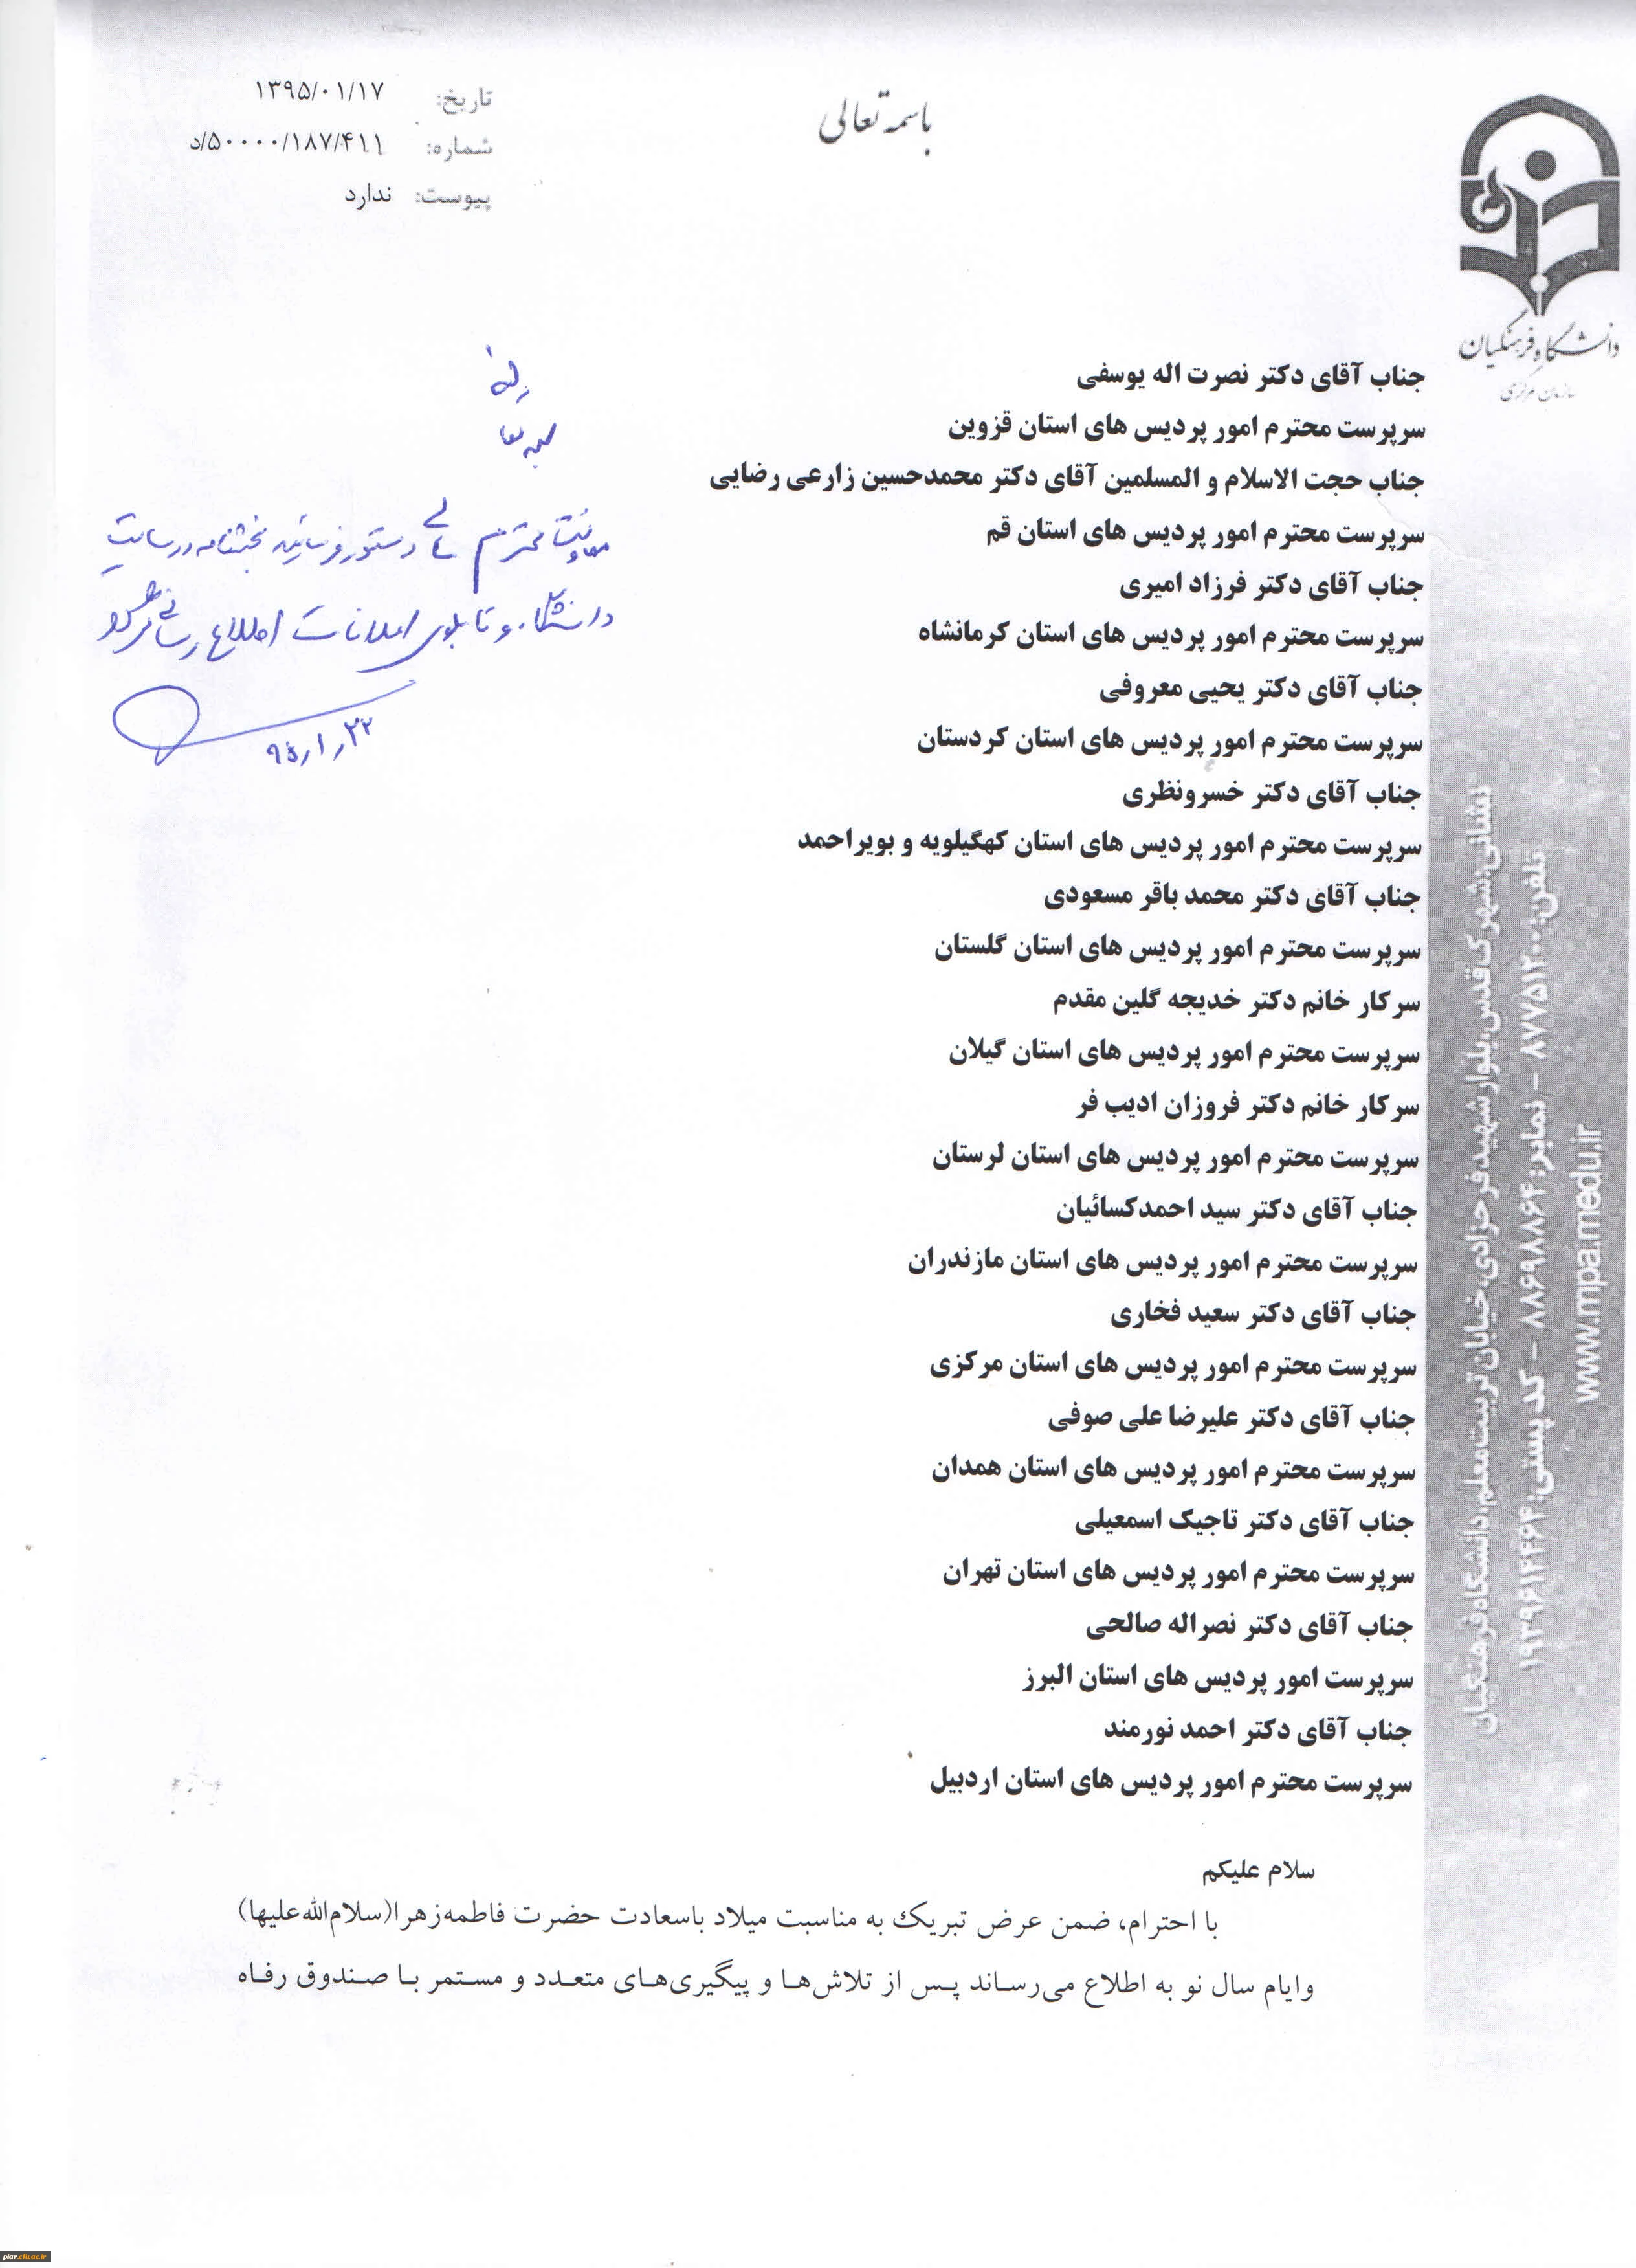 باسمه تعالی
تاریخ: ۱۳۹۵/۰۱/۱۷
شماره: ۵۰۰۰۰/۱۸۷/۴۱۱/د
پیوست: ندارد
دانشگاه فرهنگیان
سازمان مرکزی
جناب آقای دکتر نصرت اله یوسفی
سرپرست محترم امور پردیس های استان قزوین
جناب حجت الاسلام و المسلمین آقای دکتر محمدحسین زارعی رضایی
سرپرست محترم امور پردیس های استان قم
جناب آقای دکتر فرزاد امیری
سرپرست محترم امور پردیس های استان کرمانشاه
جناب آقای دکتر یحیی معروفی
سرپرست محترم امور پردیس های استان کردستان
جناب آقای دکتر خسرونظری
سرپرست محترم امور پردیس های استان کهگیلویه و بویراحمد
جناب آقای دکتر محمد باقر مسعودی
سرپرست محترم امور پردیس های استان گلستان
سرکار خانم دکتر خدیجه گلین مقدم
سرپرست محترم امور پردیس های استان گیلان
سرکار خانم دکتر فروزان ادیب فر
سرپرست محترم امور پردیس های استان لرستان
جناب آقای دکتر سید احمدکسائیان
سرپرست محترم امور پردیس های استان مازندران
جناب آقای دکتر سعید فخاری
سرپرست محترم امور پردیس های استان مرکزی
جناب آقای دکتر علیرضا علی صوفی
سرپرست محترم امور پردیس های استان همدان
جناب آقای دکتر تاجیک اسمعیلی
سرپرست محترم امور پردیس های استان تهران
جناب آقای دکتر نصراله صالحی
سرپرست امور پردیس های استان البرز
جناب آقای دکتر احمد نورمند
سرپرست محترم امور پردیس های استان اردبیل
معاونت محترم دستور فرمائید بخشنامه در سایت
دانشگاه و تابلوی اعلانات اطلاع رسانی
۹۵/۱/۲۲
سلام علیکم
با احترام، ضمن عرض تبریک به مناسبت میلاد باسعادت حضرت فاطمه‌زهرا(سلام‌الله‌علیها)
وایام سال نو به اطلاع می‌رساند پس از تلاش‌ها و پیگیری‌های متعدد و مستمر با صندوق رفاه
نشانی: شهرک قدس، بلوار شهید فرحزادی، خیابان تربیت معلم، دانشگاه فرهنگیان
تلفن: ۸۷۷۵۱۲۰۰ - نمابر: ۸۸۶۹۸۸۶۴ - کد پستی: ۱۹۳۹۶۱۴۴۶۴
www.mpa.medu.ir
piar.cfu.ac.ir